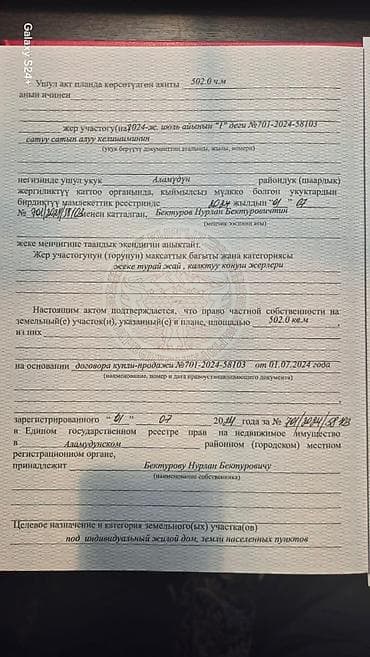 Galaxy S24+
Ушул акт планда көрсөтүлгөн аянты 502.0 ч.м
анын ичинен
жер участогу(на) 2024-ж. июль айынын "1" деги №701-2024-58103
сатуу сатып алуу келишиминин
(укук берүүчү документтин аталышы, жылы, номери)
негизинде ушул укук Аламүдүн райондук (шаардык)
жергиликтүү каттоо органында, кыймылсыз мүлккө болгон укуктардын
бирдиктүү мамлекеттик реестринде 2024 жылдын "01" 07
№ 701/2024/58103 менен катталган, Бектуров Нурлан Бектуровичтин
(менчик ээсинин аты)
жеке менчигине таандык экендигин аныктайт.
Жер участогунун (торунун) максаттык багыты жана категориясы
жеке турай жай , калктуу конуш жерлери
Настоящим актом подтверждается, что право частной собственности на
земельный(е) участок(и), указанный(е) в плане, площадью 502.0 кв.м ,
из них
на основании договора купли-продажи №701-2024-58103 от 01.07.2024 года
(наименование, номер и дата правоустанавливающего документа)
зарегистрированного " 01 " 07 2024 года за № 701/2024/58103
в Едином государственном реестре прав на недвижимое имущество
в Аламудунском районном (городском) местном
регистрационном органе,
принадлежит Бектурову Нурлан Бектуровичу
(наименование собственника)
Целевое назначение и категория земельного(ых) участка(ов)
под индивидуальный жилой дом, земли населенных пунктов